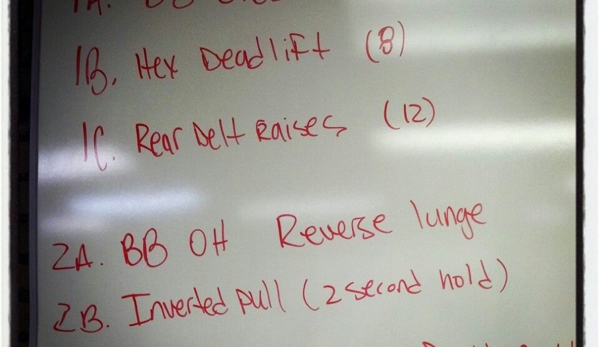 1B. Hex Deadlift (8)
1C. Rear Delt Raises (12)
2A. BB OH Reverse lunge
2B. Inverted pull (2 second hold)